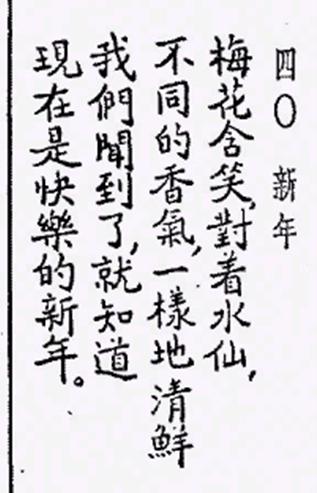 四〇 新年
梅花含笑,對着水仙,
不同的香氣,一樣地清鮮
我們聞到了,就知道
現在是快樂的新年。